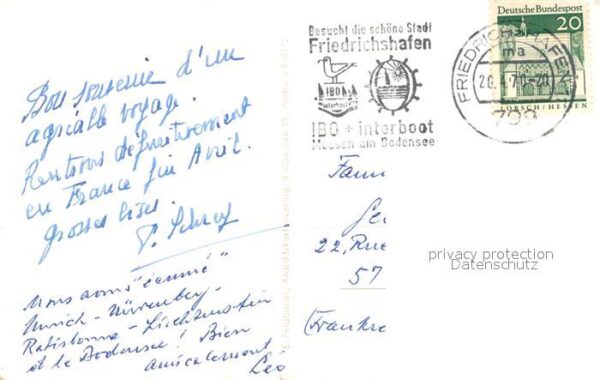 Bon souvenir d'un
agréable voyage.
Rentrons définitivement
en France fin Avril.
grosses bises.
Nous avons "écumé"
Munich - Nüremberg -
Ratisbonne - Liechtenstein
et le Bodensee! Bien
amicalement
Léo
Besucht die schöne Stadt
Friedrichshafen
IBO
interboot
IBO + interboot
Messen am Bodensee
Deutsche Bundespost
20
LORSCH/HESSEN
FRIEDRICHSHAFEN
ma
20.4.70-20
799
Fam
22, Rue
57
(Frankre
privacy protection
Datenschutz